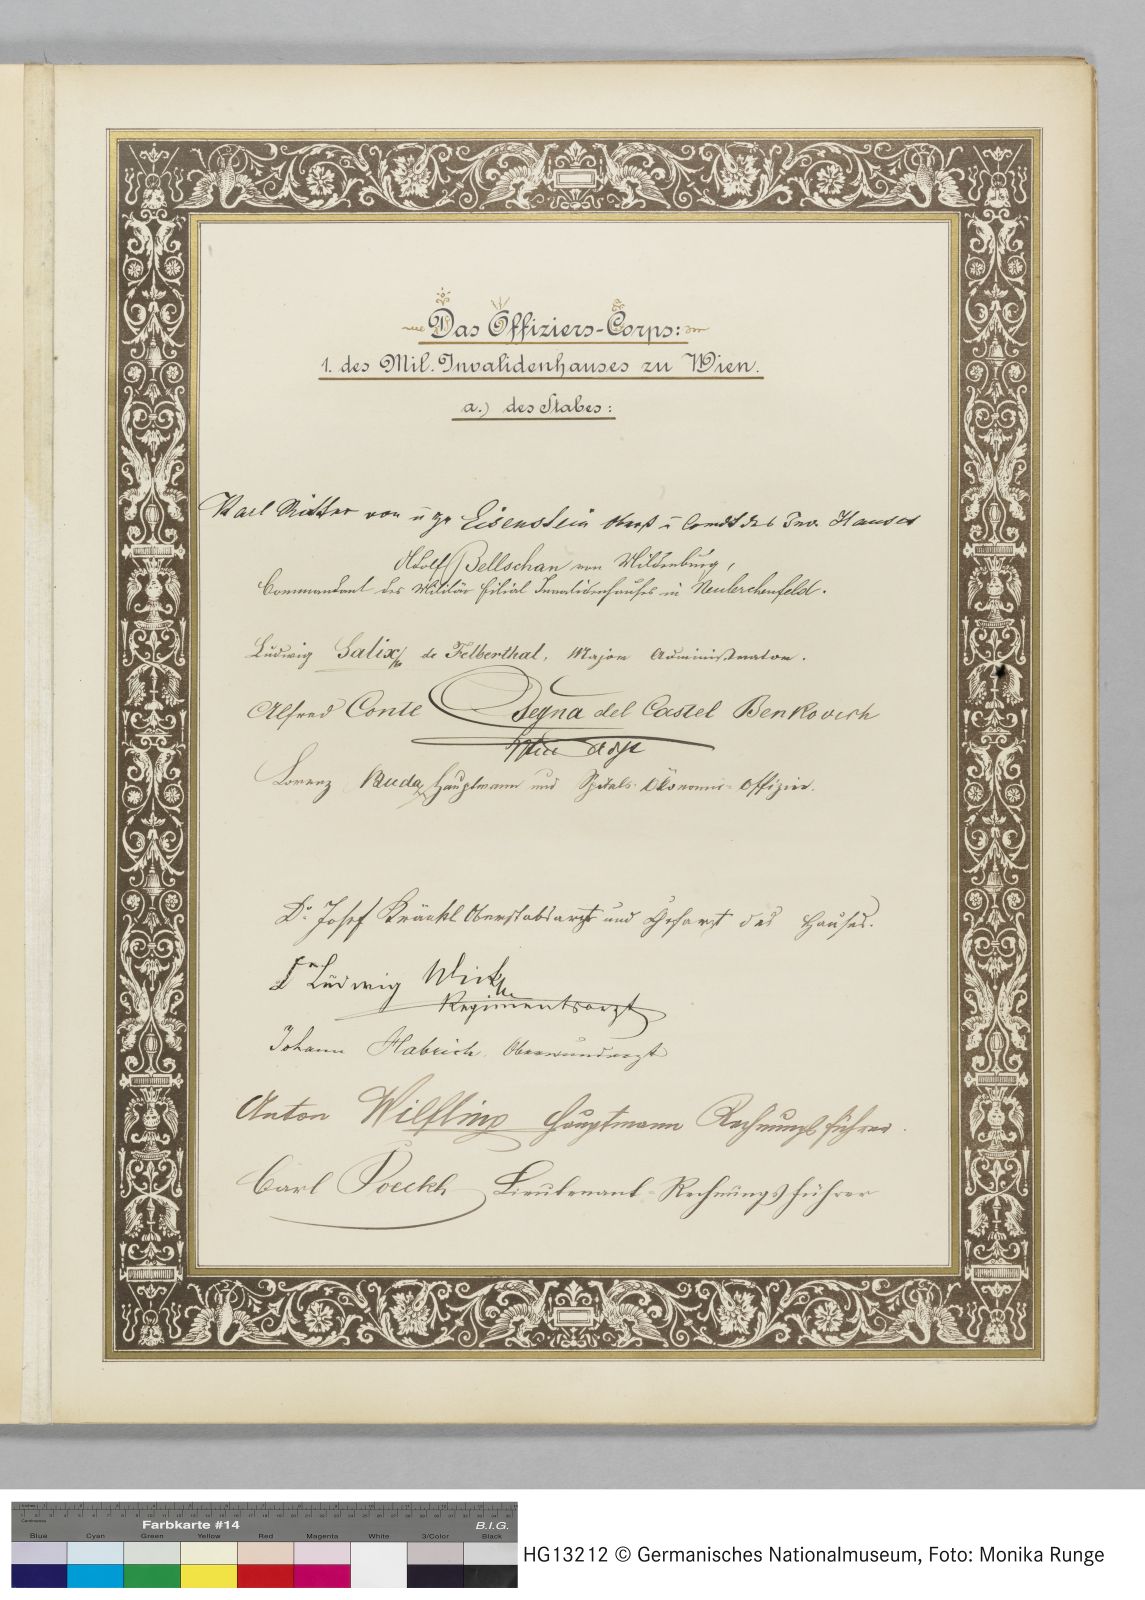 Das Offiziers-Corps:
1. des Mil. Invalidenhauses zu Wien.
a.) des Stabes:
Karl Ritter von u zu Eisenstein Oberst u Comdt des Inv. Hauses
Adolf Bellschan von Mildenburg,
Commandant des Militär Filial Invalidenhauses in Neulerchenfeld.
Ludwig Salix de Felberthal, Major Administrator.
Alfred Conte Begna del Castel Benkovich
Lorenz Buda Hauptmann und Spitals-Ökonomie-Offizier.
Dr. Josef Kräutl Oberstabsarzt und Chefarzt des Hauses.
Dr Ludwig Wick
Regimentsarzt
Johann Habrich Oberwundarzt
Anton Wilfling Hauptmann Rechnungsführer.
Carl Poeckh Lieutenant-Rechnungsführer
Farbkarte #14
B.I.G.
Blue Cyan Green Yellow Red Magenta White 3/Color Black
HG13212 © Germanisches Nationalmuseum, Foto: Monika Runge